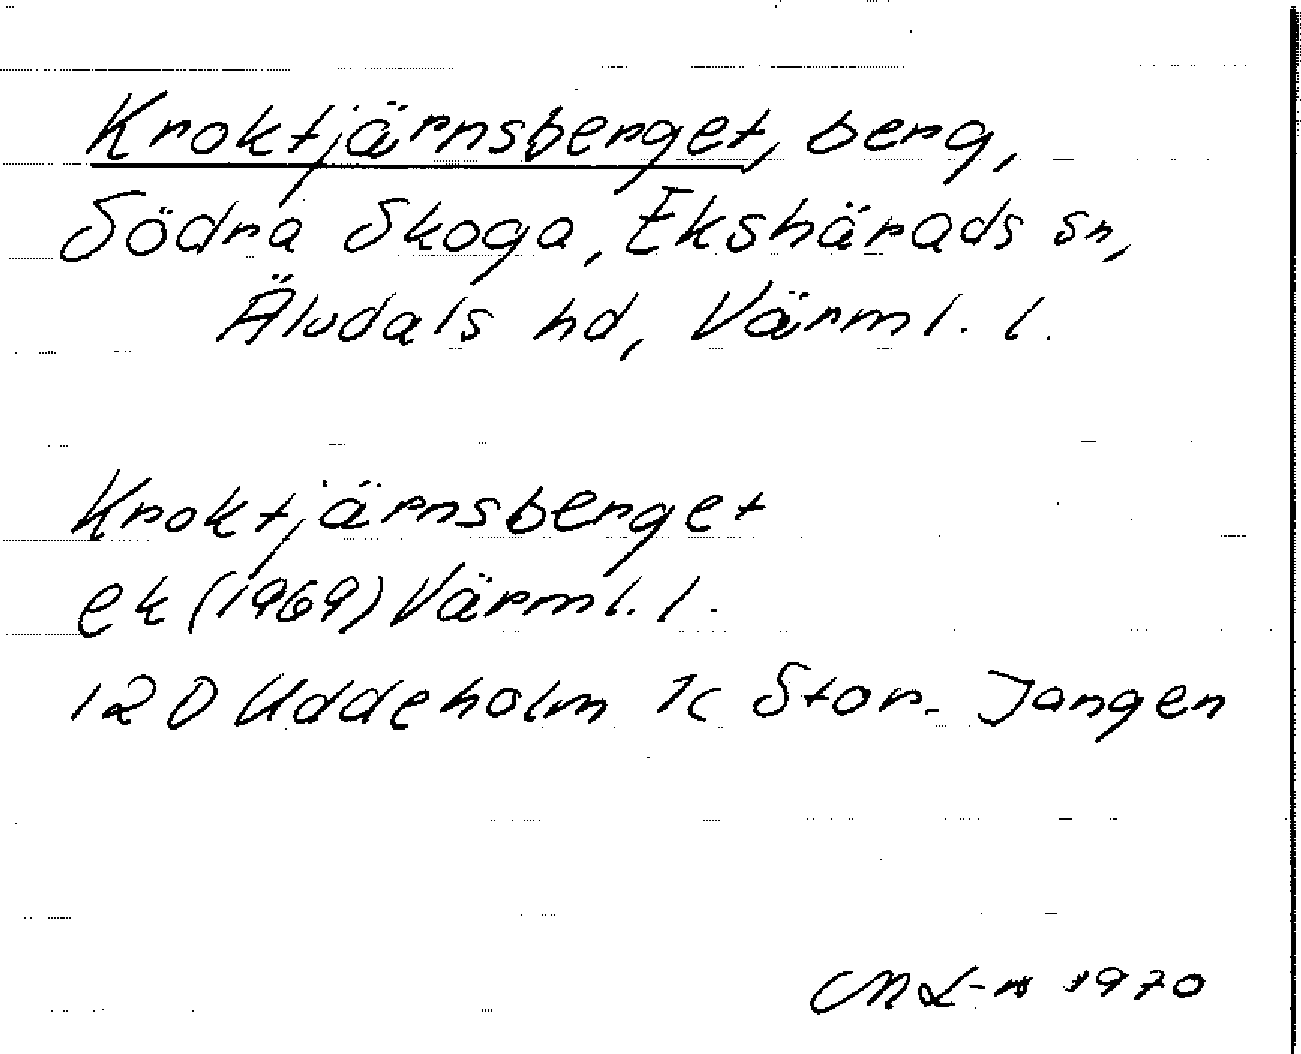 Kroktjärnsberget, berg,
Södra Skoga, Ekshärads sn,
Älvdals hd, Värml. l.
Kroktjärnsberget
ek (1969) Värml. l.
12D Uddeholm 1c Stor-Jangen
ML-n 1970